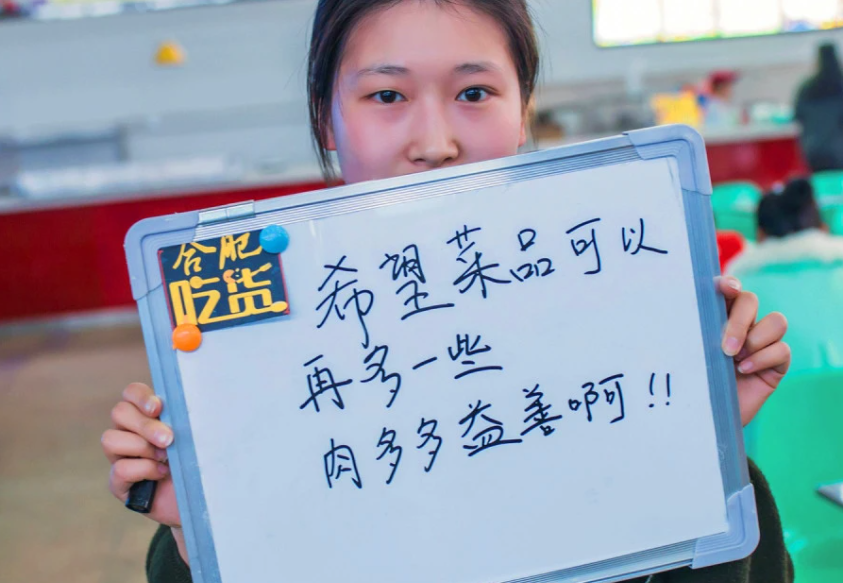 合肥
吃货
希望菜品可以
再多一些
肉多多益善啊!!